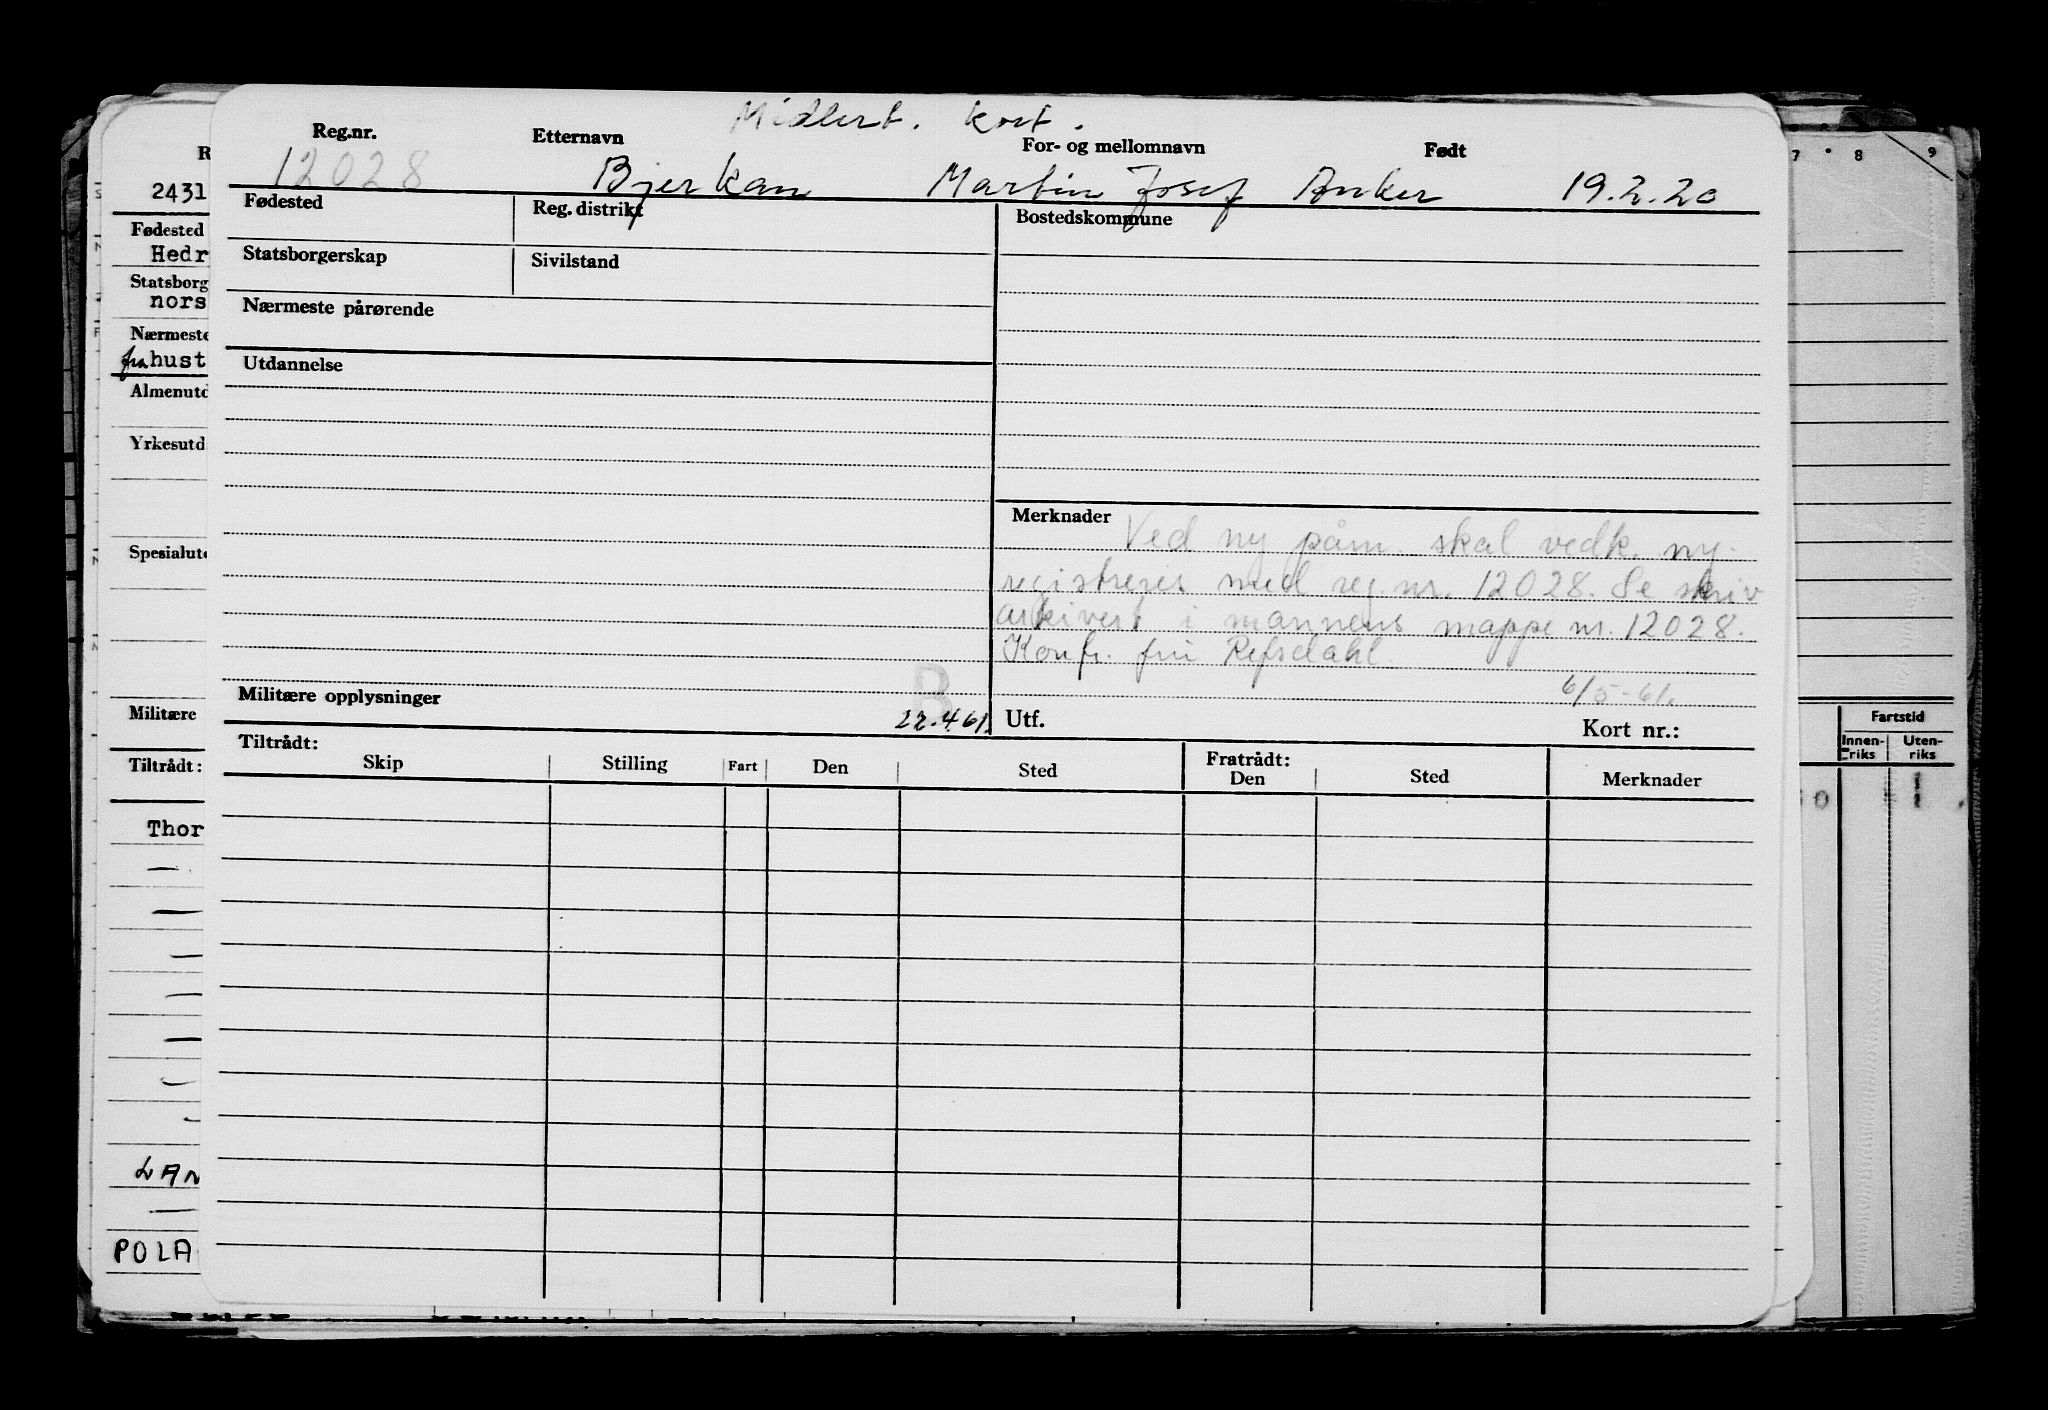 Midlert. kort.
Reg.nr. Etternavn For- og mellomnavn Født
12028 Bjerkan Martin Josef Anker 19.2.20
Fødested Reg. distrikt Bostedskommune
Statsborgerskap Sivilstand
Nærmeste pårørende
Utdannelse
Merknader
Ved ny påm. skal vedk. ny-
registreres med reg.nr. 12028. Se skriv
arkivert i mannens mappe nr. 12028.
Konfr. fru Refsdahl.
6/5-61.
Militære opplysninger B
22.4.61. Utf. Kort nr.:
Tiltrådt: Fratrådt:
Skip Stilling Fart Den Sted Den Sted Merknader
R
2431
Fødested
Hedr
Statsborg
nors
Nærmeste
fra hust
Almenutd
Yrkesutd
Spesialut
Militære
Tiltrådt:
Thor
LAN
POLA
7 8 9
Fartstid
Innen-
riks
Uten-
riks